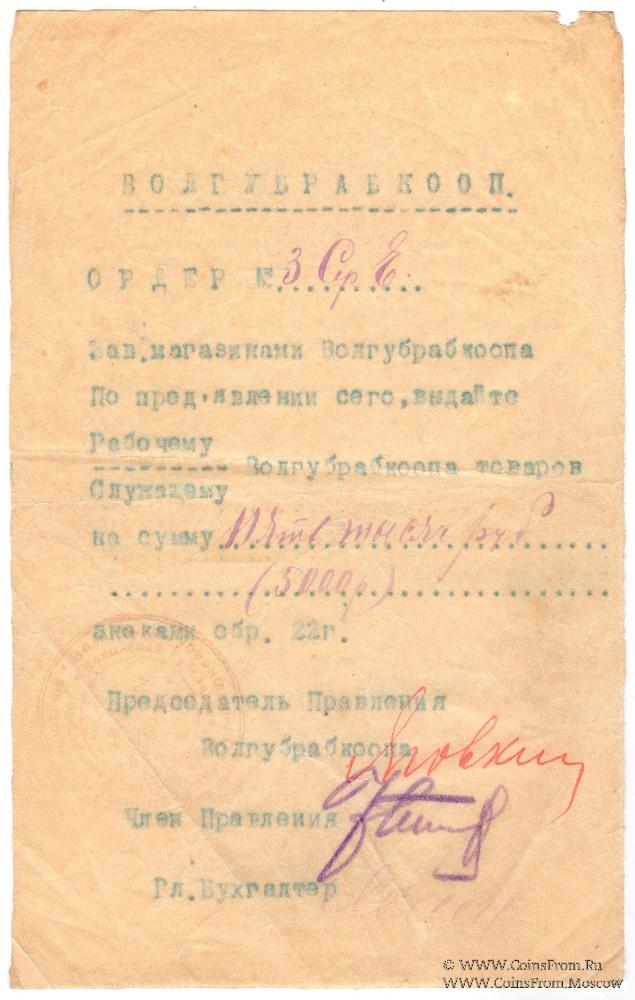 ВОЛГУБРАБКООП.
ОРДЕР № 3 Сер Е.
Зав.магазинами Волгубрабкоопа
По пред'явлении сего,выдайте
Рабочему
Волгубрабкоопа товаров
Служащему
на сумму Пять тысяч руб
(5000р)
знаками обр. 22г.
Председатель Правления
Волгубрабкоопа
Член Правления
Гл.Бухгалтер
© WWW.CoinsFrom.Ru
WWW.CoinsFrom.Moscow